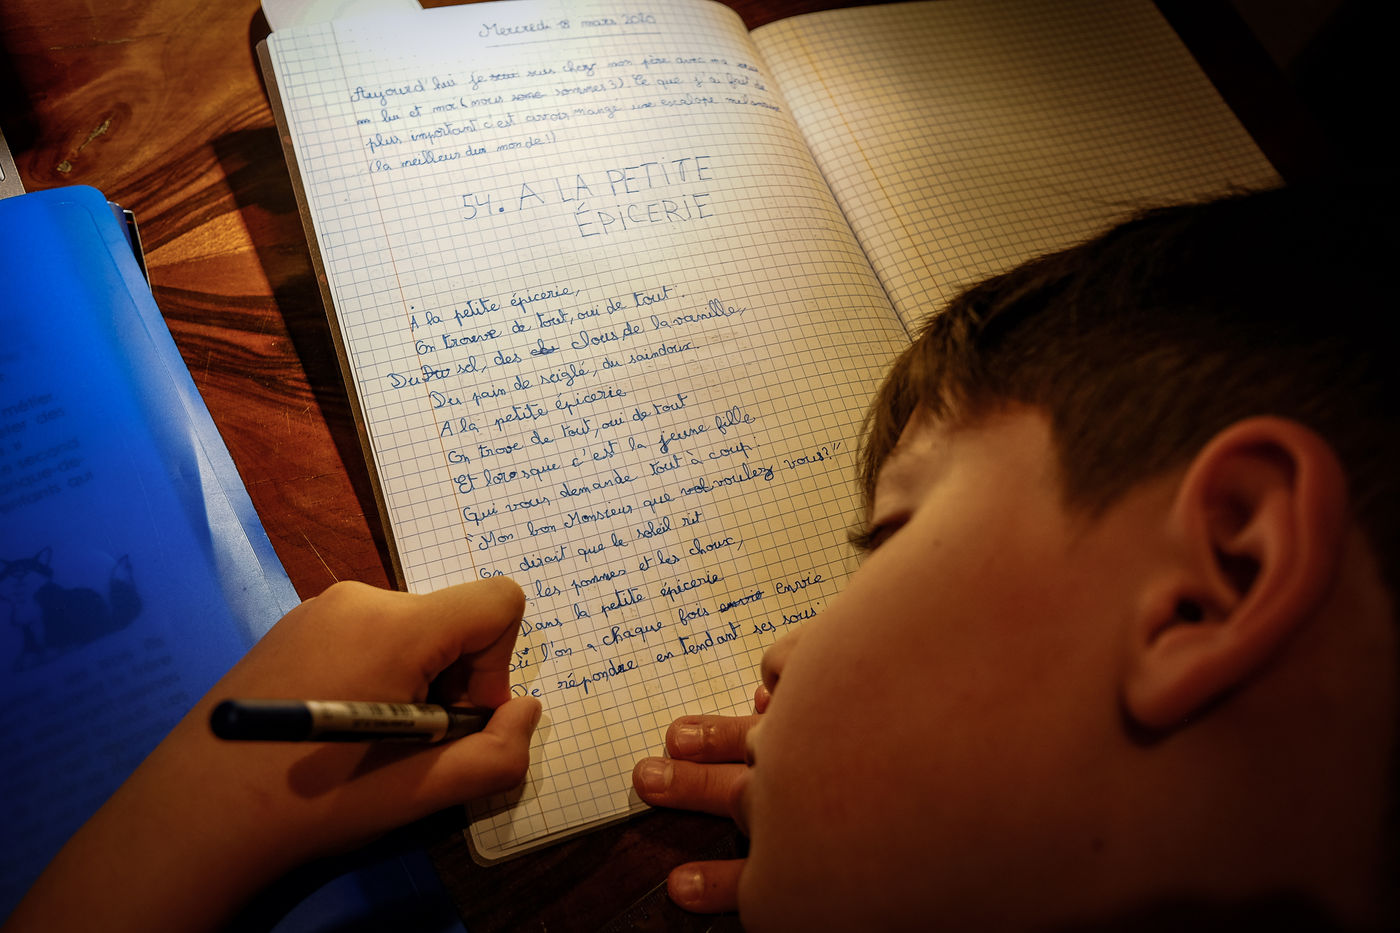 Mercredi 18 mars 2020
Aujourd'hui je suis chez mon père avec ma
lui et moi (nous some sommes 3). Ce que j'ai fait de
plus important c'est avoir mangé une escalope milanaise
(la meilleur du monde!)
54. A LA PETITE
ÉPICERIE
À la petite épicerie,
On trouve de tout, oui de tout :
Du sel, des clous, de la vanille,
Du pain de seiglé, du saindoux.
A la petite épicerie
On trove de tout, oui de tout
Et lorosque c'est la jeune fille
Qui vous demande tout à coup:
"Mon bon Monsieur que vol voulez vous?"
On dirait que le soleil rit
les pommes et les choux,
Dans la petite épicerie
Où l'on a chaque fois envie envie
De répondre en tendant ses sous:
métier
des
second